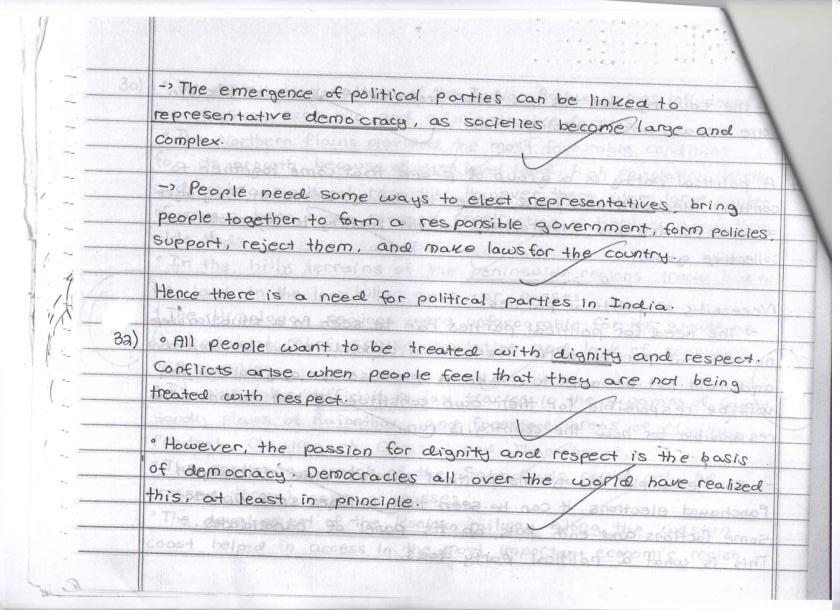 -> The emergence of political parties can be linked to
representative democracy, as societies become large and
complex.
-> People need some ways to elect representatives, bring
people together to form a responsible government, form policies,
support, reject them, and make laws for the country.
Hence there is a need for political parties in India.
32) • All people want to be treated with dignity and respect.
Conflicts arise when people feel that they are not being
treated with respect.
• However, the passion for dignity and respect is the basis
of democracy. Democracies all over the world have realized
this, at least in principle.